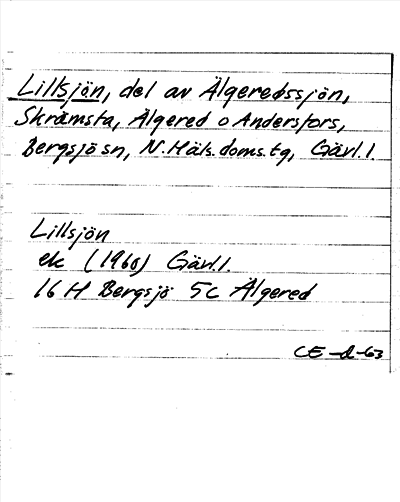 Lillsjön, del av Älgeredssjön,
Skrämsta, Älgered o Andersfors,
Bergsjö sn, N. Häls. doms. tg, Gävl. l.
Lillsjön
ek (1960) Gävl. l.
16 H Bergsjö 5c Älgered